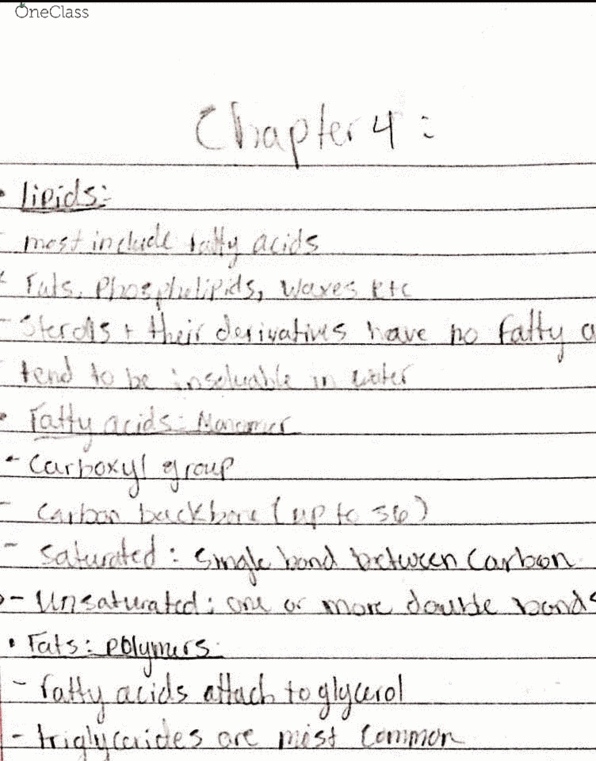 OneClass
Chapter 4:
• Lipids:
- most include fatty acids
Fats, Phospholipids, waxes etc
- Sterols + their derivatives have no fatty a
- tend to be insoluable in water
• Fatty acids: Monomer
- Carboxyl group
- Carbon backbone (up to 36)
- saturated: single bond between Carbon
- Unsaturated: one or more double bonds
• Fats: polymers:
- fatty acids attach to glycerol
- triglycerides are most common